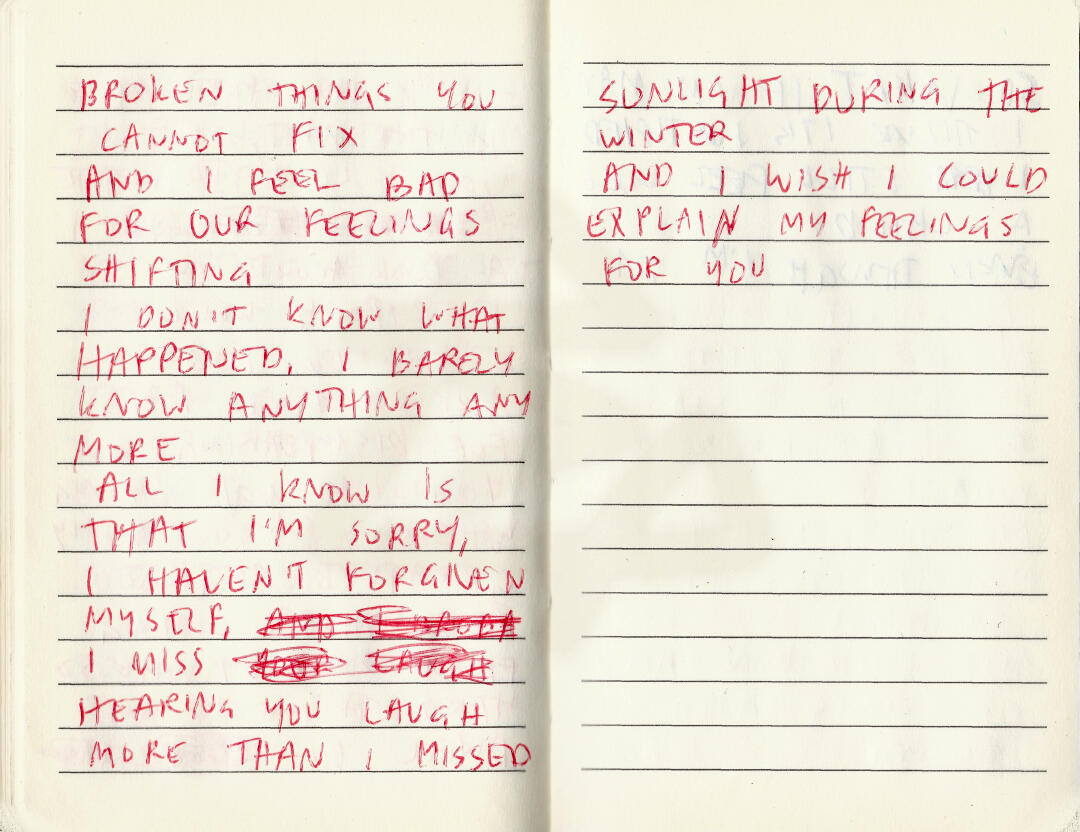 BROKEN THINGS YOU
CANNOT FIX
AND I FEEL BAD
FOR OUR FEELINGS
SHIFTING
I DON'T KNOW WHAT
HAPPENED, I BARELY
KNOW ANYTHING ANY
MORE
ALL I KNOW IS
THAT I'M SORRY,
I HAVEN'T FORGIVEN
MYSELF,
I MISS
HEARING YOU LAUGH
MORE THAN I MISSED
SUNLIGHT DURING THE
WINTER
AND I WISH I COULD
EXPLAIN MY FEELINGS
FOR YOU